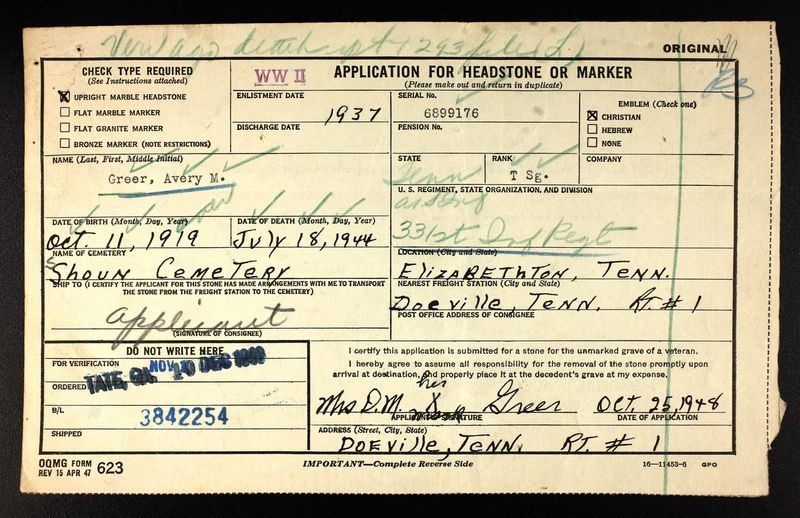 ORIGINAL
CHECK TYPE REQUIRED
(See Instructions attached)
☒ UPRIGHT MARBLE HEADSTONE
☐ FLAT MARBLE MARKER
☐ FLAT GRANITE MARKER
☐ BRONZE MARKER (NOTE RESTRICTIONS)
WW II
APPLICATION FOR HEADSTONE OR MARKER
(Please make out and return in duplicate)
ENLISTMENT DATE
1937
DISCHARGE DATE
SERIAL No.
6899176
PENSION No.
EMBLEM (Check one)
☒ CHRISTIAN
☐ HEBREW
☐ NONE
NAME (Last, First, Middle Initial)
Greer, Avery M.
STATE
Tenn
RANK
T Sg.
COMPANY
U. S. REGIMENT, STATE ORGANIZATION, AND DIVISION
331st Inf Regt
DATE OF BIRTH (Month, Day, Year)
Oct. 11, 1919
DATE OF DEATH (Month, Day, Year)
July 18, 1944
NAME OF CEMETERY
Shoun Cemetery
LOCATION (City and State)
Elizabethton, Tenn.
SHIP TO (I CERTIFY THE APPLICANT FOR THIS STONE HAS MADE ARRANGEMENTS WITH ME TO TRANSPORT
THE STONE FROM THE FREIGHT STATION TO THE CEMETERY)
applicant
(SIGNATURE OF CONSIGNEE)
NEAREST FREIGHT STATION (City and State)
Doeville, Tenn. Rt. # 1
POST OFFICE ADDRESS OF CONSIGNEE
DO NOT WRITE HERE
FOR VERIFICATION
ORDERED
TATE, GA.
B/L
3842254
SHIPPED
I certify this application is submitted for a stone for the unmarked grave of a veteran.
I hereby agree to assume all responsibility for the removal of the stone promptly upon
arrival at destination, and properly place it at the decedent's grave at my expense.
her
Mrs D.M. X Greer Oct. 25, 1948
mark
APPLICANT'S SIGNATURE
DATE OF APPLICATION
ADDRESS (Street, City, State)
Doeville, Tenn. Rt. # 1
OQMG FORM
REV 15 APR 47
623
IMPORTANT—Complete Reverse Side
16—11453-6 GPO